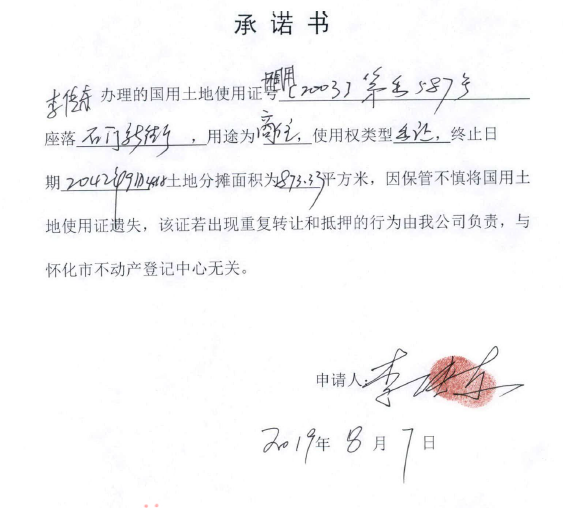 承诺书
李 办理的国用土地使用证号 国用〔2003〕第出587号
座落 石门新街 ，用途为 商住，使用权类型 出让，终止日
期 2042年9月 日 土地分摊面积为 893.33 平方米，因保管不慎将国用土
地使用证遗失，该证若出现重复转让和抵押的行为由我公司负责，与
怀化市不动产登记中心无关。
申请人：李
2019年 8 月 7 日